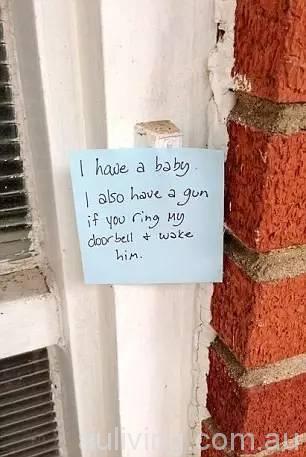 I have a baby.
I also have a gun
if you ring my
doorbell + wake
him.
auliving.com.au